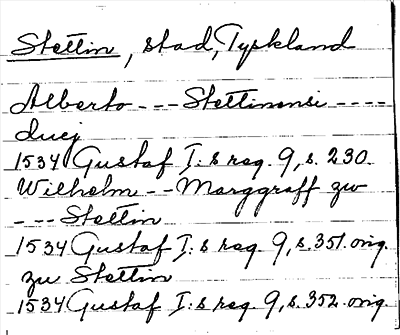 Stettin, stad, Tyskland
Alberto --- Stettinensi ----
duci
1534 Gustaf I:s reg. 9, s. 230.
Wilhelm -- Marggraff zu
--- Stettin
1534 Gustaf I:s reg. 9, s. 351. orig.
zu Stettin
1534 Gustaf I:s reg. 9, s. 352. orig.